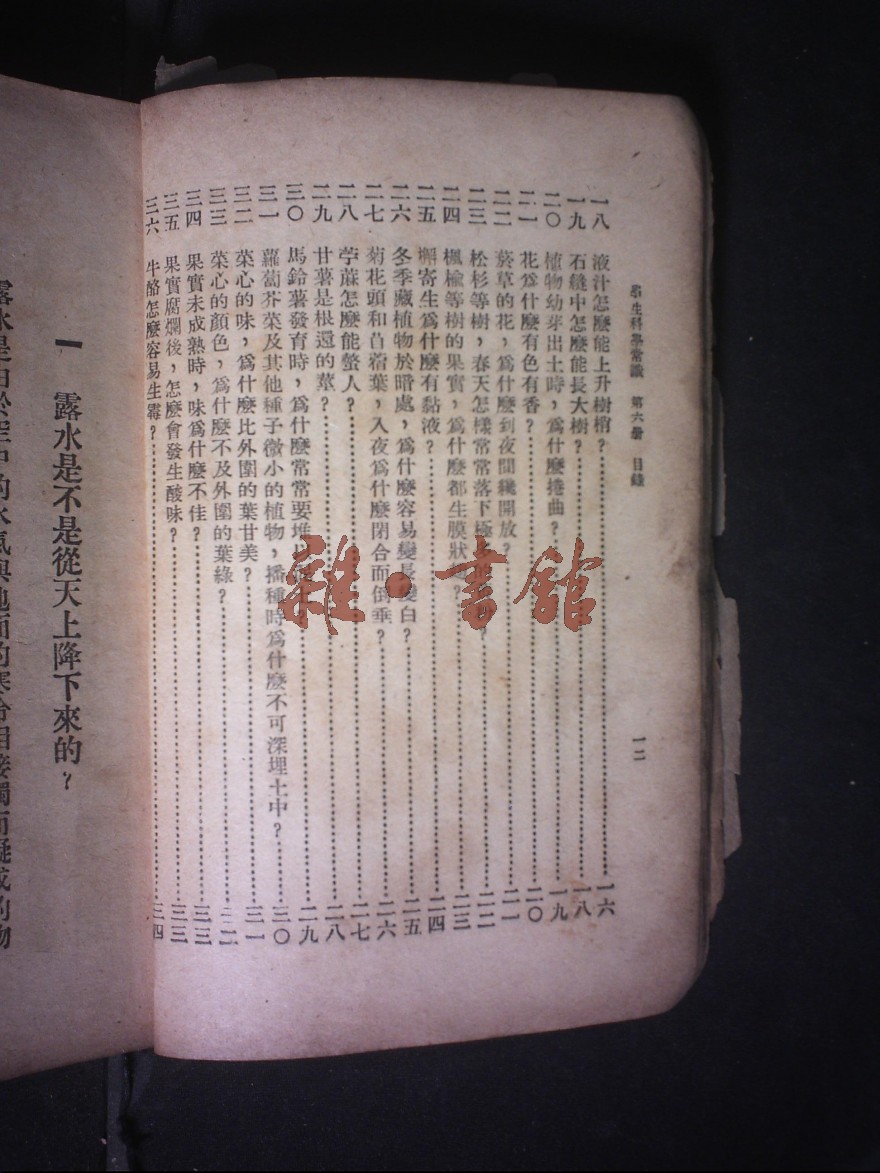 學生科學常識　第六册　目錄
一二
一八　液汁怎麽能上升樹梢？……一六
一九　石縫中怎麽能長大樹？……一八
二〇　植物幼芽出土時，爲什麽捲曲？……一九
二一　花爲什麽有色有香？……二〇
二二　菸草的花，爲什麽到夜間纔開放？……二一
二三　松杉等樹，春天怎樣常常落下極……二二
二四　楓楡等樹的果實，爲什麽都生膜狀……？……二三
二五　槲寄生爲什麽有黏液？……二四
二六　冬季藏植物於暗處，爲什麽容易變長變白？……二五
二七　菊花頭和苜蓿葉，入夜爲什麽閉合而倒垂？……二六
二八　苧蔴怎麽能螫人？……二七
二九　甘薯是根還的莖？……二八
三〇　馬鈴薯發育時，爲什麽常常要堆……？……二九
三一　蘿蔔芥菜及其他種子微小的植物，播種時爲什麽不可深埋土中？……三〇
三二　菜心的味，爲什麽比外圍的葉甘美？……三一
三三　菜心的顏色，爲什麽不及外圍的葉綠？……三二
三四　果實未成熟時，味爲什麽不佳？……三三
三五　果實腐爛後，怎麽會發生酸味？……三三
三六　牛酪怎麽容易生霉？……三四
雜·書館
一　露水是不是從天上降下來的？
露水是由於空中的水氣與地面的寒冷相接觸而凝成的物